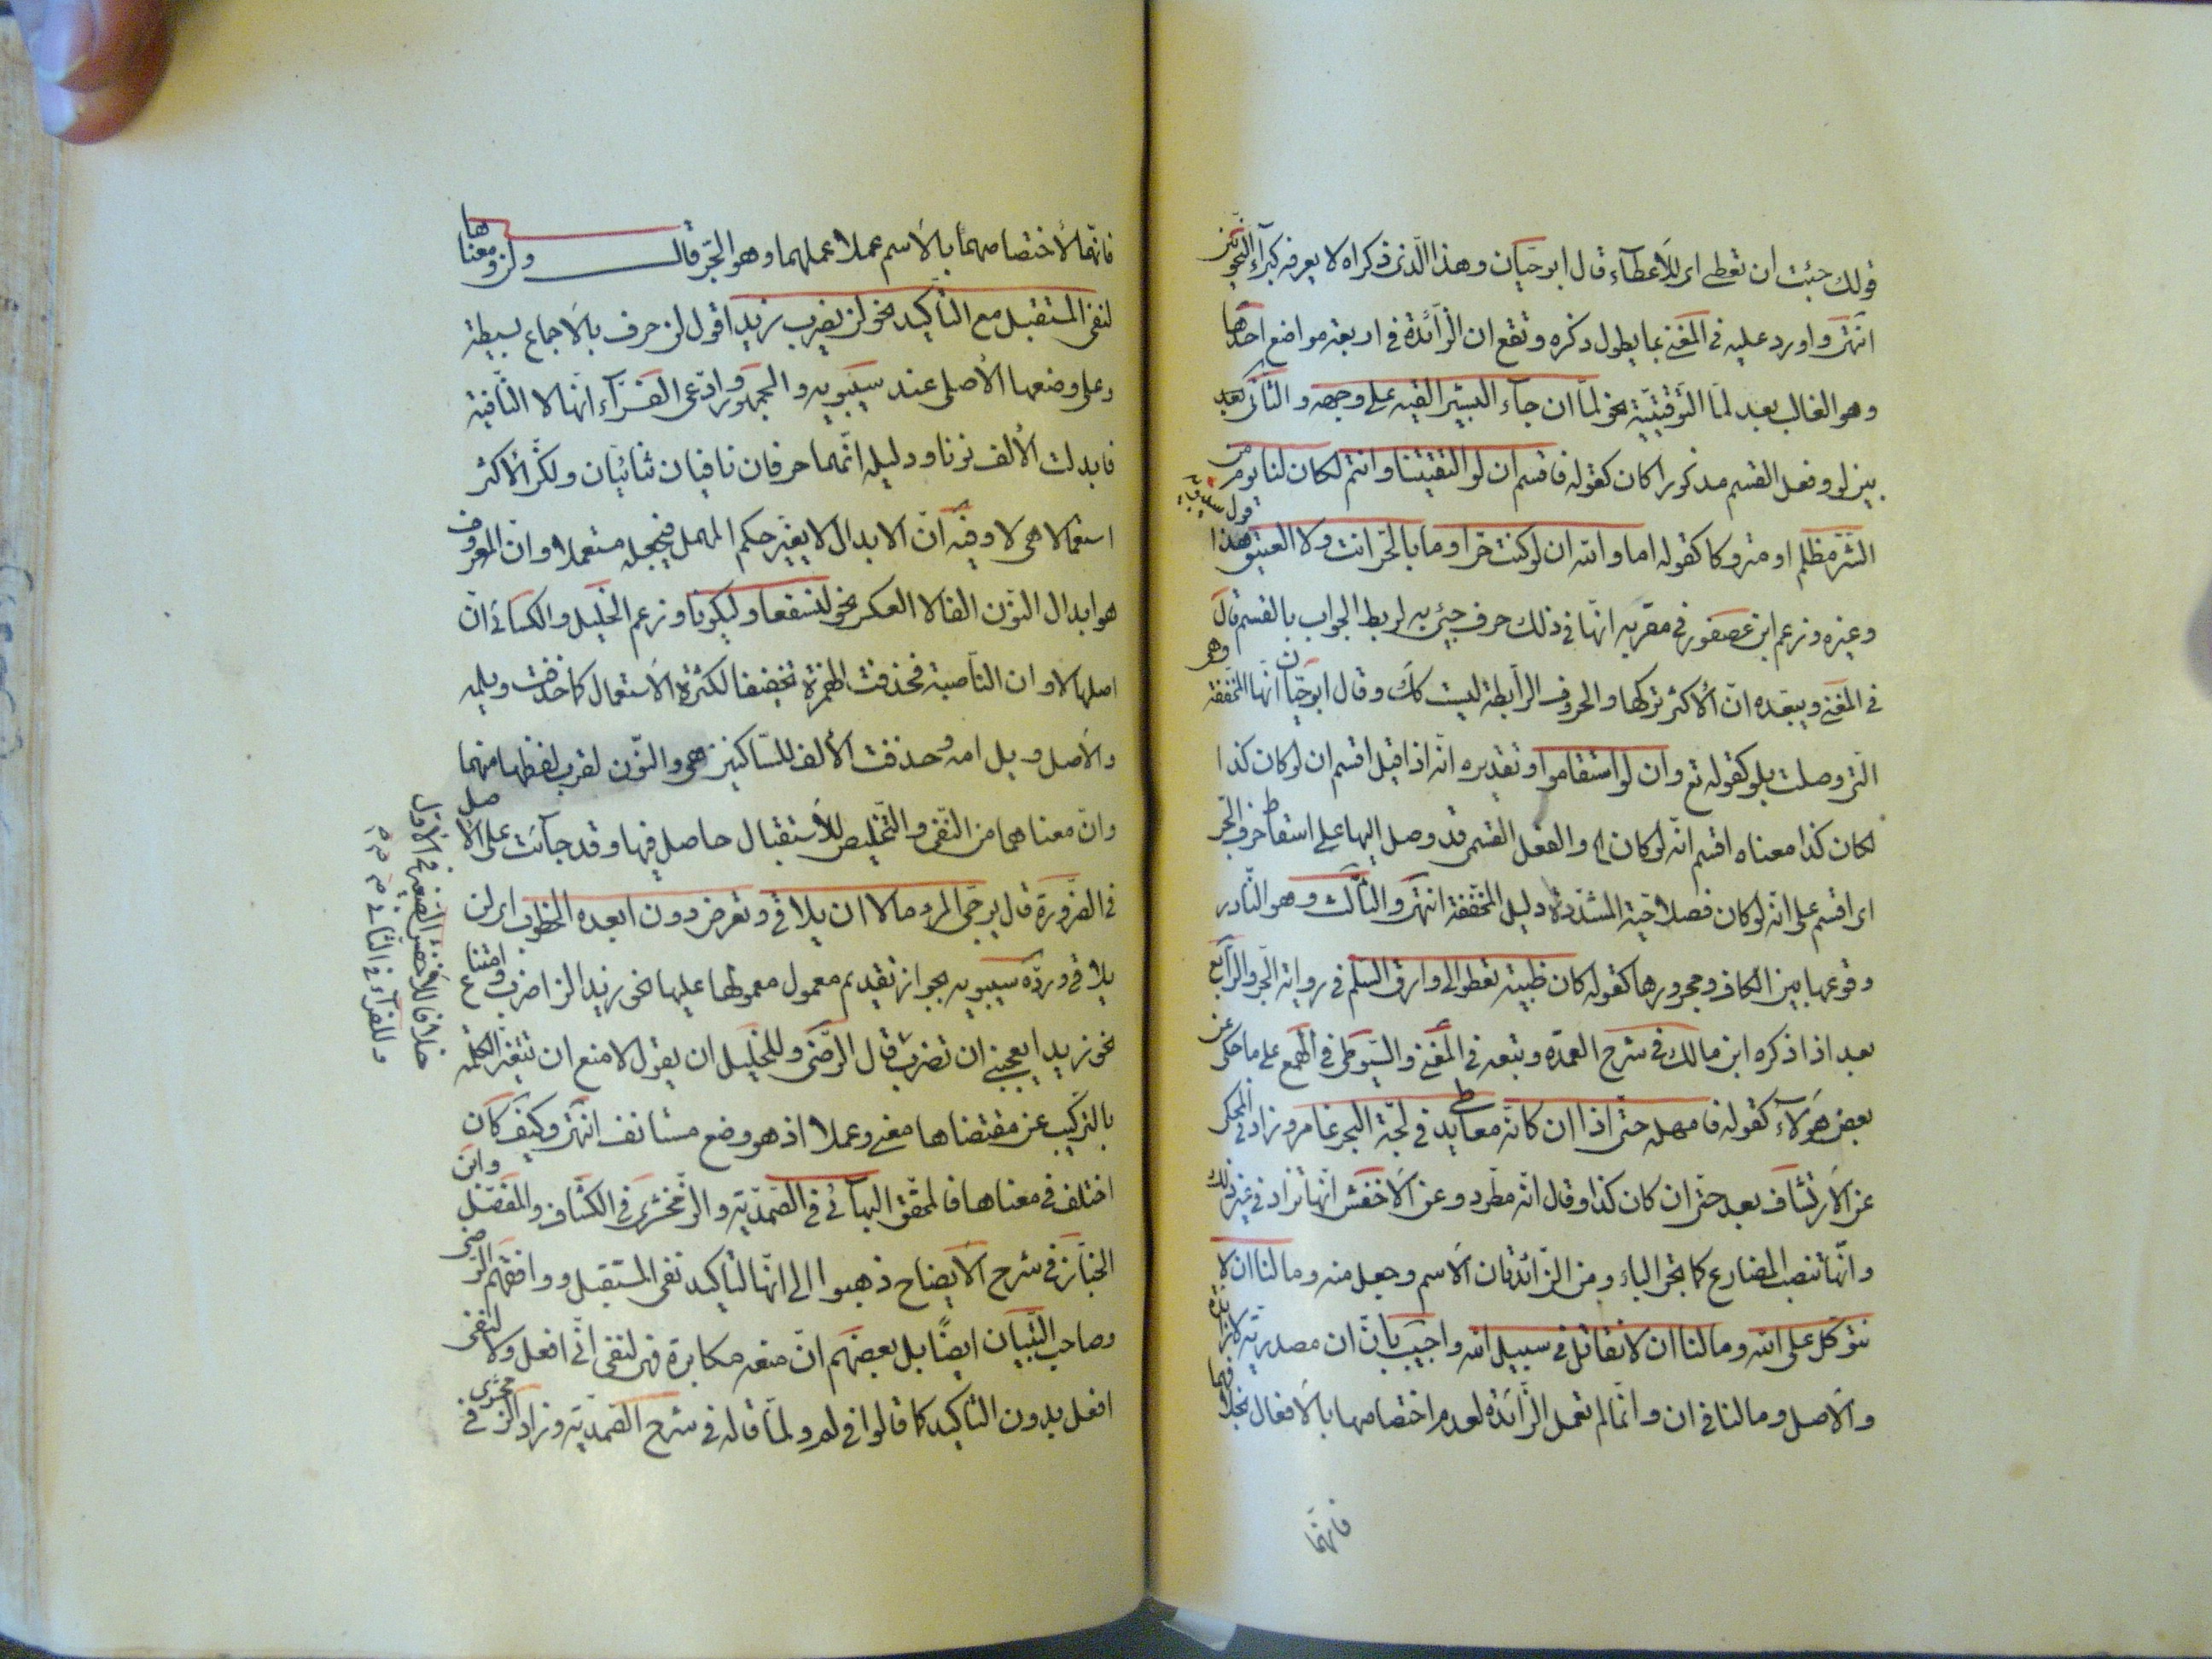 قولك جئت ان تعطی ای للأعطآء قال ابو حیّان وهذا الّذی ذکراه لا یعرفه کبرآء النّحویّین
انتهی و اورد علیه فی المغنی بما یطول ذکره و تقع ان الزّآئدة فی اربعة مواضع احدها
وهو الغالب بعد لمّا التّوقیتیّة نحو لمّا ان جآء البشیر القیه علی وجهه و الثّانی بعد
بین لو وفعل القسم مذکورا کان کقوله فاقسم ان لو التقینا وانتم لکان لنا یوم من
الشّرّ مظلم او متروکا کقوله اما والله ان لو کنت حرّا وما بالحرّ انت ولا العتیق هذا قول سیبویه
وغیره وزعم ابن عصفور فی مقرّبه انّها فی ذلک حرف جیئ به لربط الجواب بالقسم قال
فی المغنی ویبعّده انّ الأکثر ترکها والحروف الرّابطة لیست کک وقال ابو حیّان انّها المخفّفة وهی
الّتی وصلت بلو کقوله تع وان لو استقاموا وتقدیره انّه اذا قیل اقسم ان لو کان کذا
لکان کذا معناه اقسم انّه لو کان اه والفعل القسمی قد وصل الیها علی اسقاط حرف الجّر
ای اقسم علی انّه لو کان فصلاحیّة المشدّدة دلیل المخفّفة انتهی والثّالث وهو النّادر
وقوعها بین الکاف ومجرورها کقوله کان ظبیة تعطو الی وارق السّلم فی روایة الجّر والرّابع
بعد اذا ذکره ابن مالک فی شرح العمدة وتبعه فی المغنی والسّیوطی فی الهمع علی ما حکی عن
بعض هؤلآء کقوله فامهله حتّی اذا ان کانّه معاطی ید فی لجّة البحر غامر وزاد فی المحکی
عن الارتشاف بعد حتّی ان کان کذا وقال انّه مطّرد وعن الأخفش انّها تزاد فی غیر ذلک
وانّها تنصب المضارع کما تجرّ الباء ومن الزّائدتان الأسم وجعل منه وما لنا ان لا
نتوکّل علی الله وما لنا ان لا نقاتل فی سبیل الله واجیب بانّ ان مصدریّة لا زائدة
والأصل وما لنا فی ان وانّما لم تعمل الزّآئدة لعدم اختصاصها بالأفعال بخلافهما
فانّهما
فانّهما لأختصاصهما بالأسم عملا عملهما وهو الجّر قال ولن ومعناها
لنفی المستقبل مع التّأکید نحو لن یضرب زید اقول لن حرف بالأجماع بسیطة
وعلی وضعها الأصلی عند سیبویه والجمهور وادّعی الفرّآء انّها لا النّافیة
فابدلت الألف نونا ودلیله انّهما حرفان نافیان ثنائیّان ولکنّ الأکثر
استعمالا هی لا وفیه انّ الابدال لا یغیّر حکم المهمل فیجعله مستعملا وانّ المعروف
هو ابدال النّون الفا لا العکس نحو لنسفعا ولیکونا وزعم الخلیل والکسائی انّ
اصلها لا وان النّاصبة فحذفت الهمزة تخفیفا لکثرة الأستعمال کما حذفت ویلمه
والأصل ویل امه وحذفت الألف للسّاکنین هی والنّون لقرب لفظها منهما
وانّ معناهما من النّفی والتّخلیص للأستقبال حاصل فیها وقد جآئت علی الأصل
فی الضّرورة قال یرجّی المرء ما لا ان یلاقی وتعرض دون ابعده الخطوب ای لن
یلاقی وردّه سیبویه بجواز تقدیم معمول معمولها علیها نحو زیدا لن اضرب وامتناع
نحو زیدا یعجبنی ان تضرب قال الرّضی وللخلیل ان یقول لا منع ان تتغیّر الکلمة
بالترکیب عن مقتضاها معنی وعملا اذ هو وضع مستأنف انتهی وکیف کان
اختلف فی معناها فالمحقّق البهآئی فی الصّمدیّة والزّمخشری فی الکشّاف والمفصّل وابن
الخبّاز فی شرح الأیضاح ذهبوا الی انّها لتأکید نفی المستقبل ووافقهم الرّضی
وصاحب التّبیان ایضًا بل بعضهم انّ منعه مکابرة فهی لنفی انّی افعل ولا لنفی
افعل بدون التّاکید کما قالوا فی لم ولمّا قاله فی شرح الصّمدیّة وزاد الزّمخشری فی
خلافا للأخفش الصّغیر فی الأوّل
وللفرّآء فی الثّانی م م م